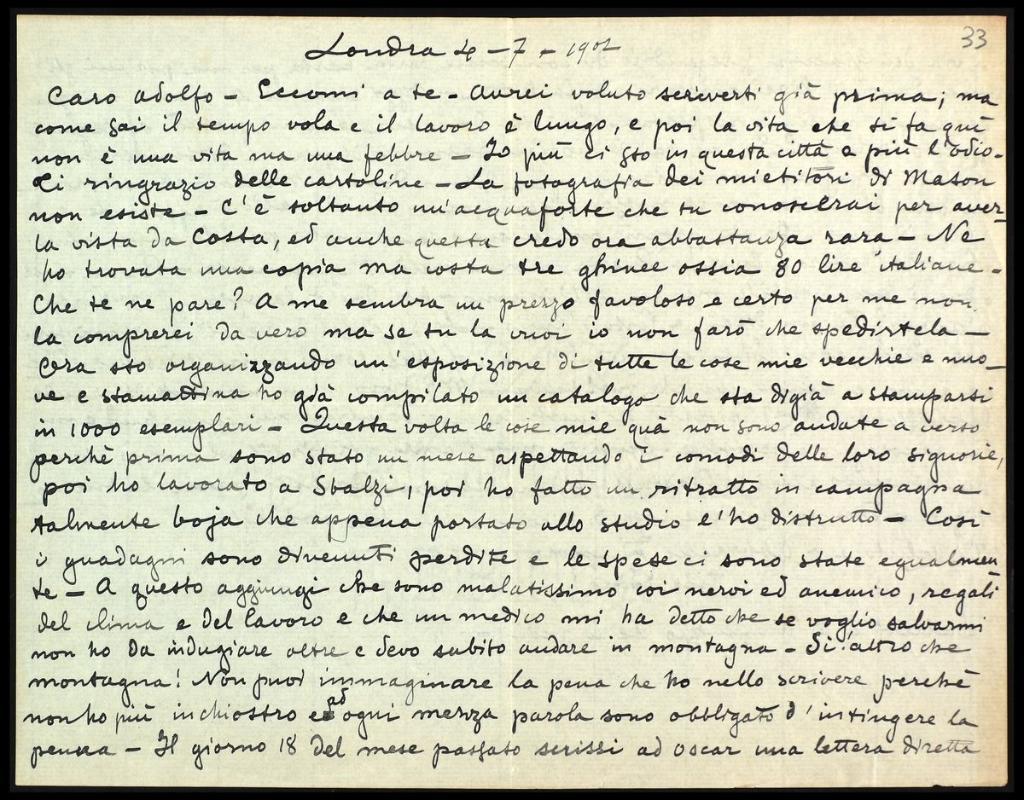 33
Londra 4-7-1902
Caro Adolfo - Eccomi a te - Avrei voluto scriverti già prima; ma
come sai il tempo vola e il lavoro è lungo, e poi la vita che si fa quì
non è una vita ma una febbre - Io più ci sto in questa città e più l'odio -
Ti ringrazio delle cartoline - La fotografia dei mietitori di Mason
non esiste - C'è soltanto un'acquaforte che tu conoscerai per aver-
la vista da Costa, ed anche questa credo ora abbastanza rara - Ne
ho trovata una copia ma costa tre ghinee ossia 80 lire italiane -
Che te ne pare? A me sembra un prezzo favoloso e certo per me non
la comprerei davvero ma se tu la vuoi io non farò che spedirtela -
Ora sto organizzando un'esposizione di tutte le cose mie vecchie e nuo-
ve e stamattina ho già compilato un catalogo che sta digià a stamparsi
in 1000 esemplari - Questa volta le cose mie quà non sono andate a verso
perchè prima sono stato un mese aspettando i comodi delle loro signorie,
poi ho lavorato a Sbalzi, poi ho fatto un ritratto in campagna
talmente boja che appena portato allo studio l'ho distrutto - Così
i guadagni sono divenuti perdite e le spese ci sono state egualmen
te - A questo aggiungi che sono malatissimo coi nervi ed anemico, regali
del clima e del lavoro e che un medico mi ha detto che se voglio salvarmi
non ho da indugiare oltre e devo subito andare in montagna - Si! altro che
montagna! Non puoi immaginare la pena che ho nello scrivere perchè
non ho più inchiostro e ad ogni mezza parola sono obbligato d'intingere la
penna - Il giorno 18 del mese passato scrissi ad Oscar una lettera diretta